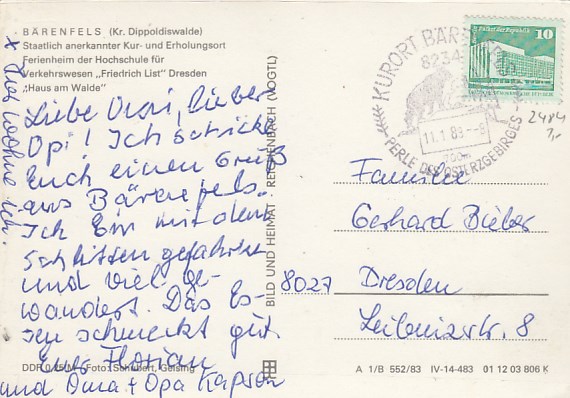 BÄRENFELS (Kr. Dippoldiswalde)
Staatlich anerkannter Kur- und Erholungsort
Ferienheim der Hochschule für
Verkehrswesen „Friedrich List" Dresden
„Haus am Walde"
x hier wohne ich.
Liebe Omi, lieber
Opi! Ich schicke
Euch einen Gruß
aus Bärenfels.
Ich bin mit dem
Schlitten gefahren
und viel ge-
wandert. Das Es-
sen schmeckt gut.
Euer Florian
und Oma + Opa
BILD UND HEIMAT REICHENBACH (VOGTL)
KURORT BÄRENFELS
8234
11.1.89-8
700m
PERLE DES OSTERZGEBIRGES
10
Palast der Republik
2484
1,-
Familie
Gerhard Bieber
8027 Dresden
Leibnizstr. 8
DDR 0,25 M Foto: Schubert, Geising
A 1/B 552/83 IV-14-483 01 12 03 806 K